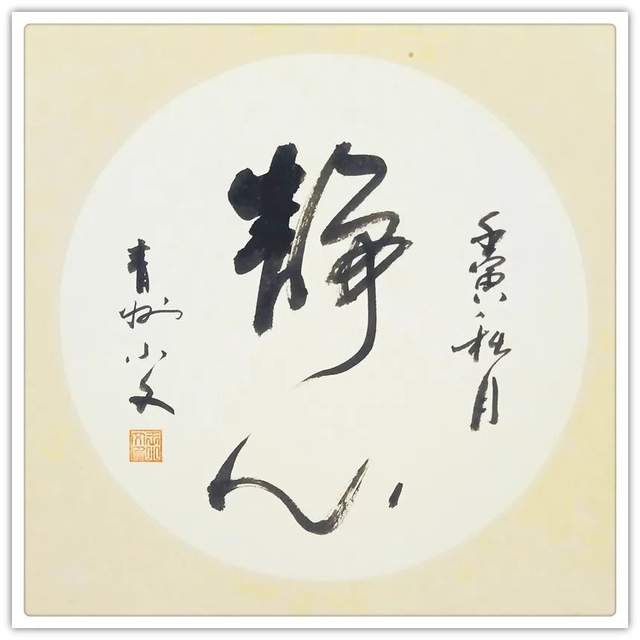 静心
壬寅秋月
青州小文